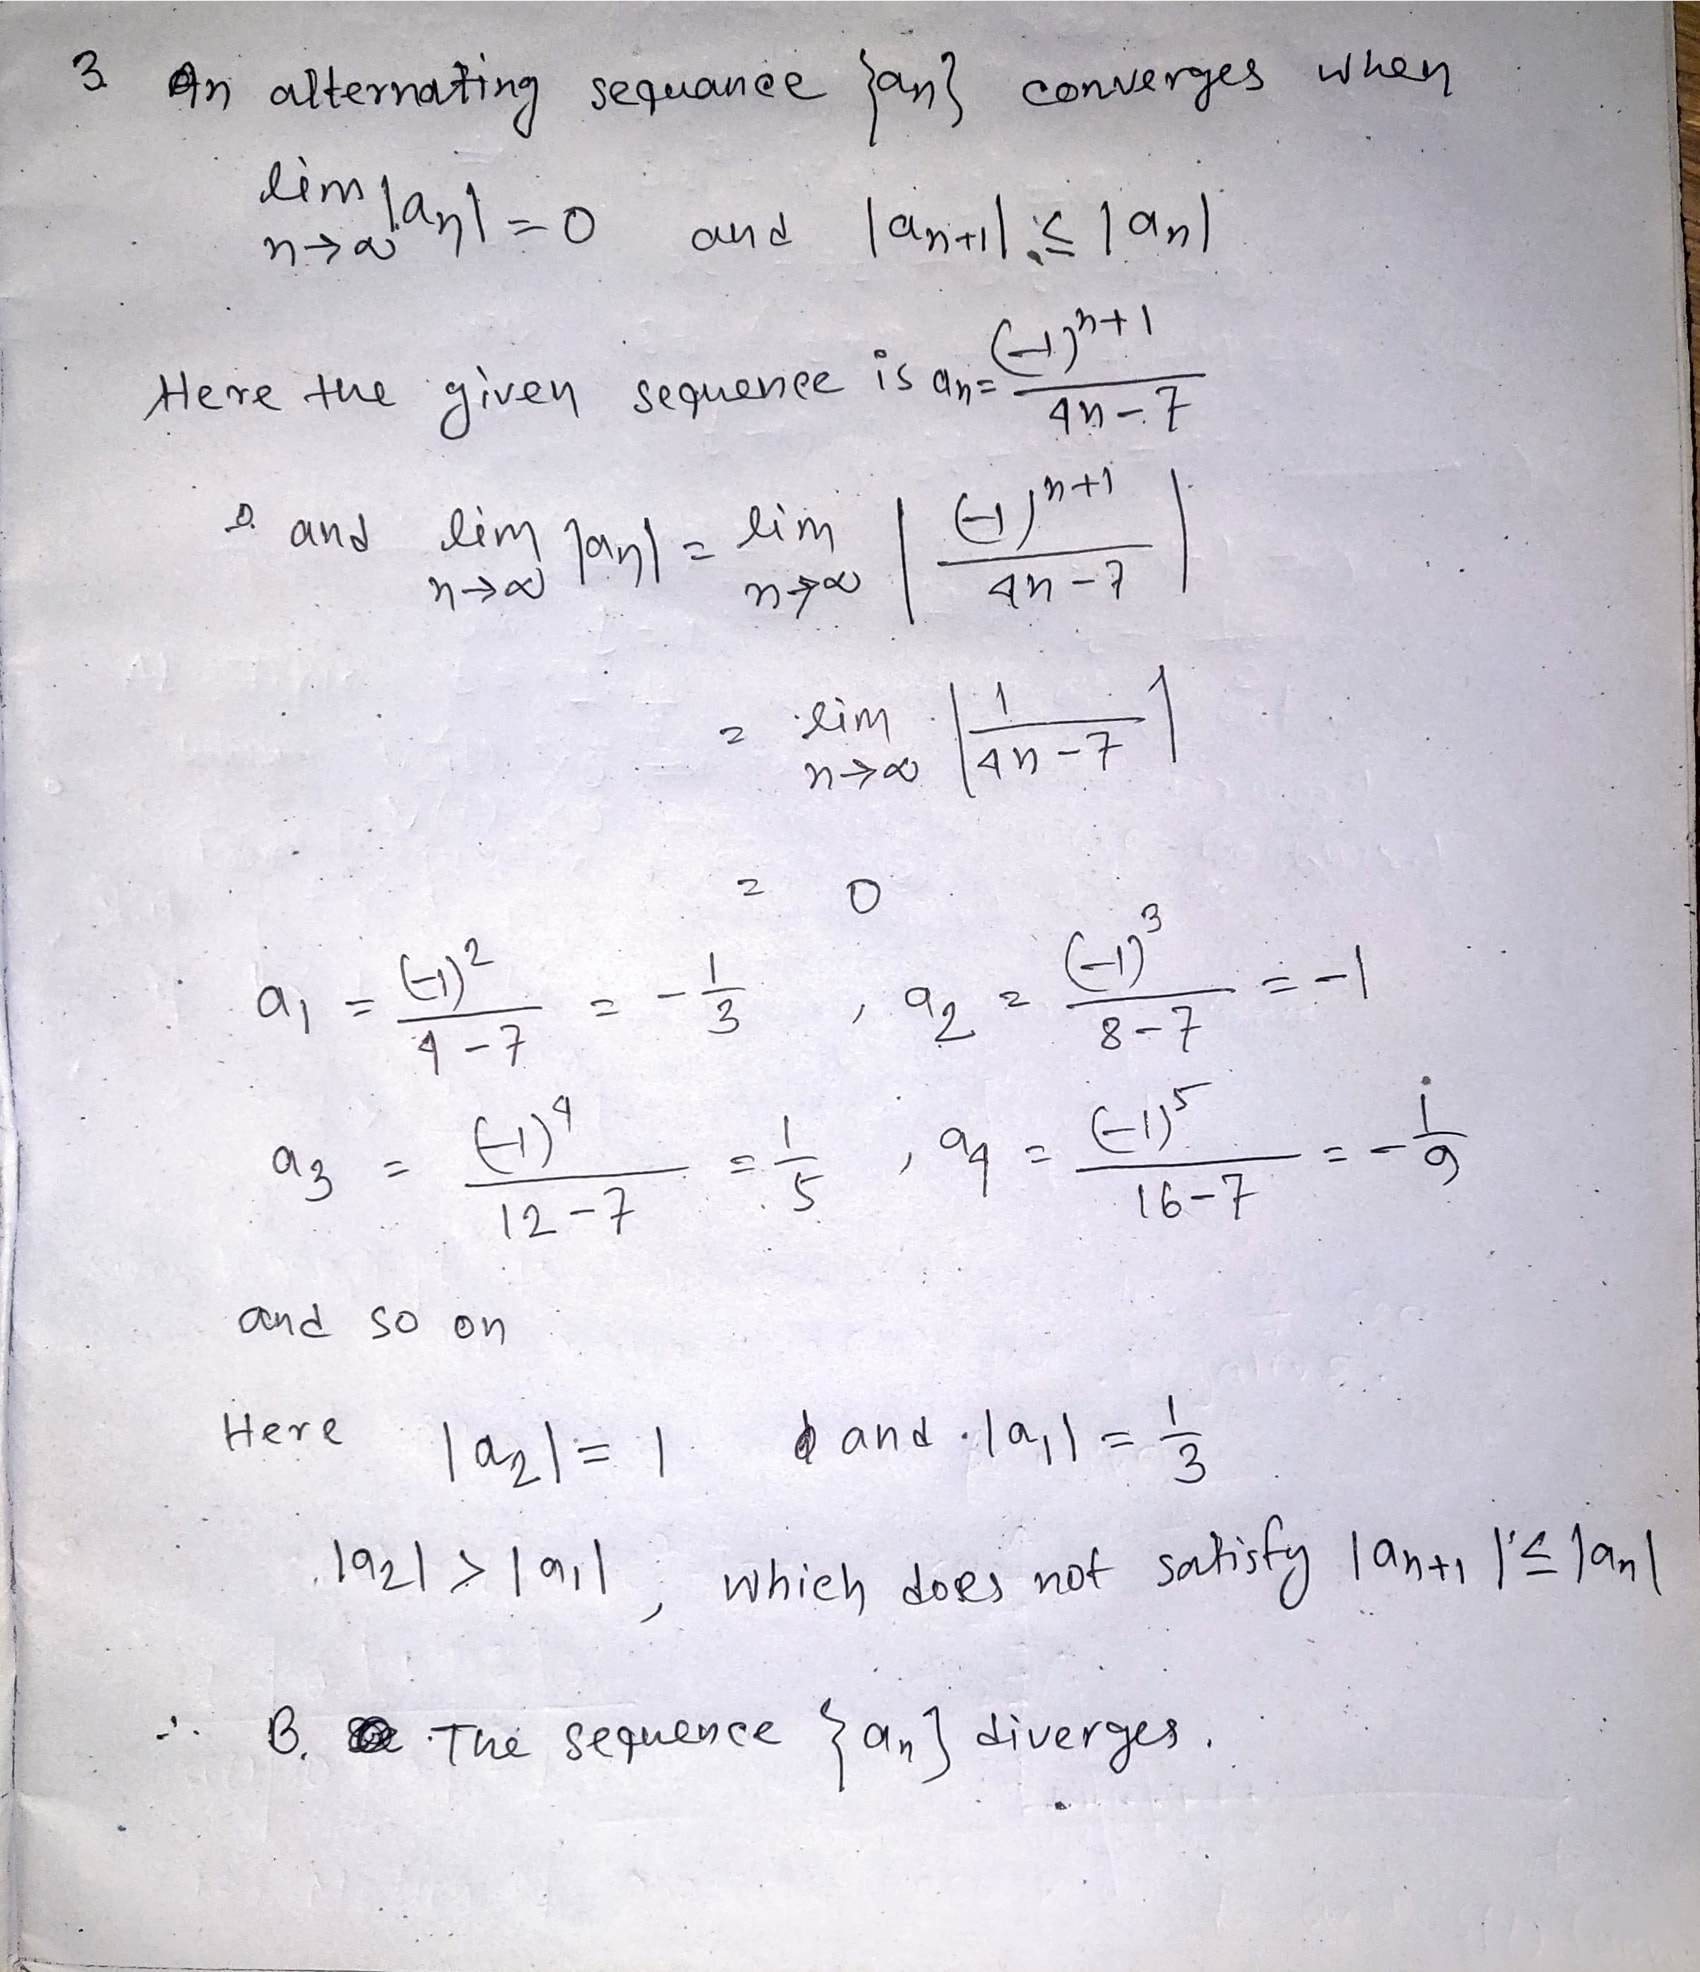 3. An alternating sequance {an} converges when
lim n→∞ |an| = 0 and |an+1| ≤ |an|
Here the given sequence is an = (-1)^n+1 / 4n-7
and lim n→∞ |an| = lim n→∞ | (-1)^n+1 / 4n-7 |
= lim n→∞ | 1 / 4n-7 |
= 0
a1 = (-1)^2 / 4-7 = -1/3 , a2 = (-1)^3 / 8-7 = -1
a3 = (-1)^4 / 12-7 = 1/5 , a4 = (-1)^5 / 16-7 = -1/9
and so on
Here |a2| = 1 and |a1| = 1/3
|a2| > |a1| , which does not satisfy |an+1| ≤ |an|
∴ B. The sequence {an} diverges.